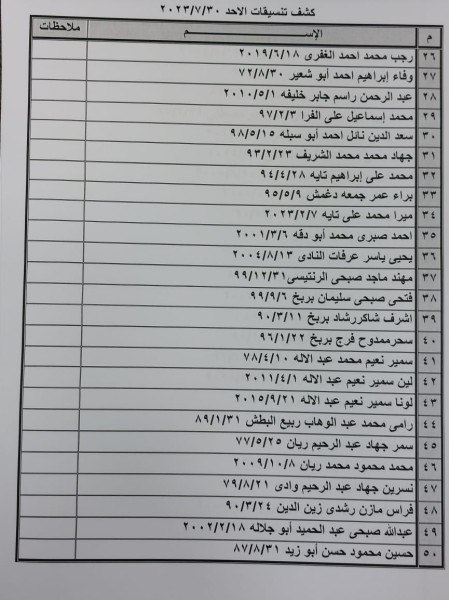 كشف تنسيقات الاحد ٢٠٢٣/٧/٣٠
م الإســـــم ملاحظات
٢٦ رجب محمد احمد الغفرى ٢٠١٩/٦/١٨
٢٧ وفاء إبراهيم احمد أبو شعير ٧٢/٨/٣٠
٢٨ عبد الرحمن راسم جابر خليفه ٢٠١٠/٥/١
٢٩ محمد إسماعيل على الفرا ٩٧/٢/٣
٣٠ سعد الدين نائل احمد أبو سبله ٩٨/٥/١٥
٣١ جهاد محمد محمد الشريف ٩٣/٢/٢٣
٣٢ محمد على إبراهيم تايه ٩٤/٤/٢٨
٣٣ براء عمر جمعه دغمش ٩٥/٥/٩
٣٤ ميرا محمد على تايه ٢٠٢٣/٢/٧
٣٥ احمد صبرى محمد أبو دقه ٢٠٠١/٣/٦
٣٦ يحيى ياسر عرفات النادى ٢٠٠٤/٨/١٣
٣٧ مهند ماجد صبحى الرنتيسى ٩٩/١٢/٣١
٣٨ فتحى صبحى سليمان بربخ ٩٩/٩/٦
٣٩ اشرف شاكررشاد بربخ ٩٠/٣/١١
٤٠ سحرممدوح فرج بربخ ٩٦/١/٢٢
٤١ سمير نعيم محمد عبد الاله ٧٨/٤/١٠
٤٢ لين سمير نعيم عبد الاله ٢٠١١/٤/١
٤٣ لونا سمير نعيم عبد الاله ٢٠١٥/٩/٢١
٤٤ رامى محمد عبد الوهاب ربيع البطش ٨٩/١/٣١
٤٥ سمر جهاد عبد الرحيم ريان ٧٧/٥/٢٥
٤٦ محمد محمود محمد ريان ٢٠٠٩/١٠/٨
٤٧ نسرين جهاد عبد الرحيم وادى ٧٩/٨/٢١
٤٨ فراس مازن رشدى زين الدين ٩٠/٣/٢٤
٤٩ عبدالله صبحى عبد الحميد أبو جلاله ٢٠٠٢/٢/١٨
٥٠ حسين محمود حسن أبو زيد ٨٧/٨/٣١